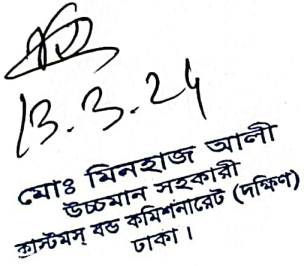 13.3.24
মোঃ মিনহাজ আলী
উচ্চমান সহকারী
কাস্টমস্ বন্ড কমিশনারেট (দক্ষিণ)
ঢাকা।